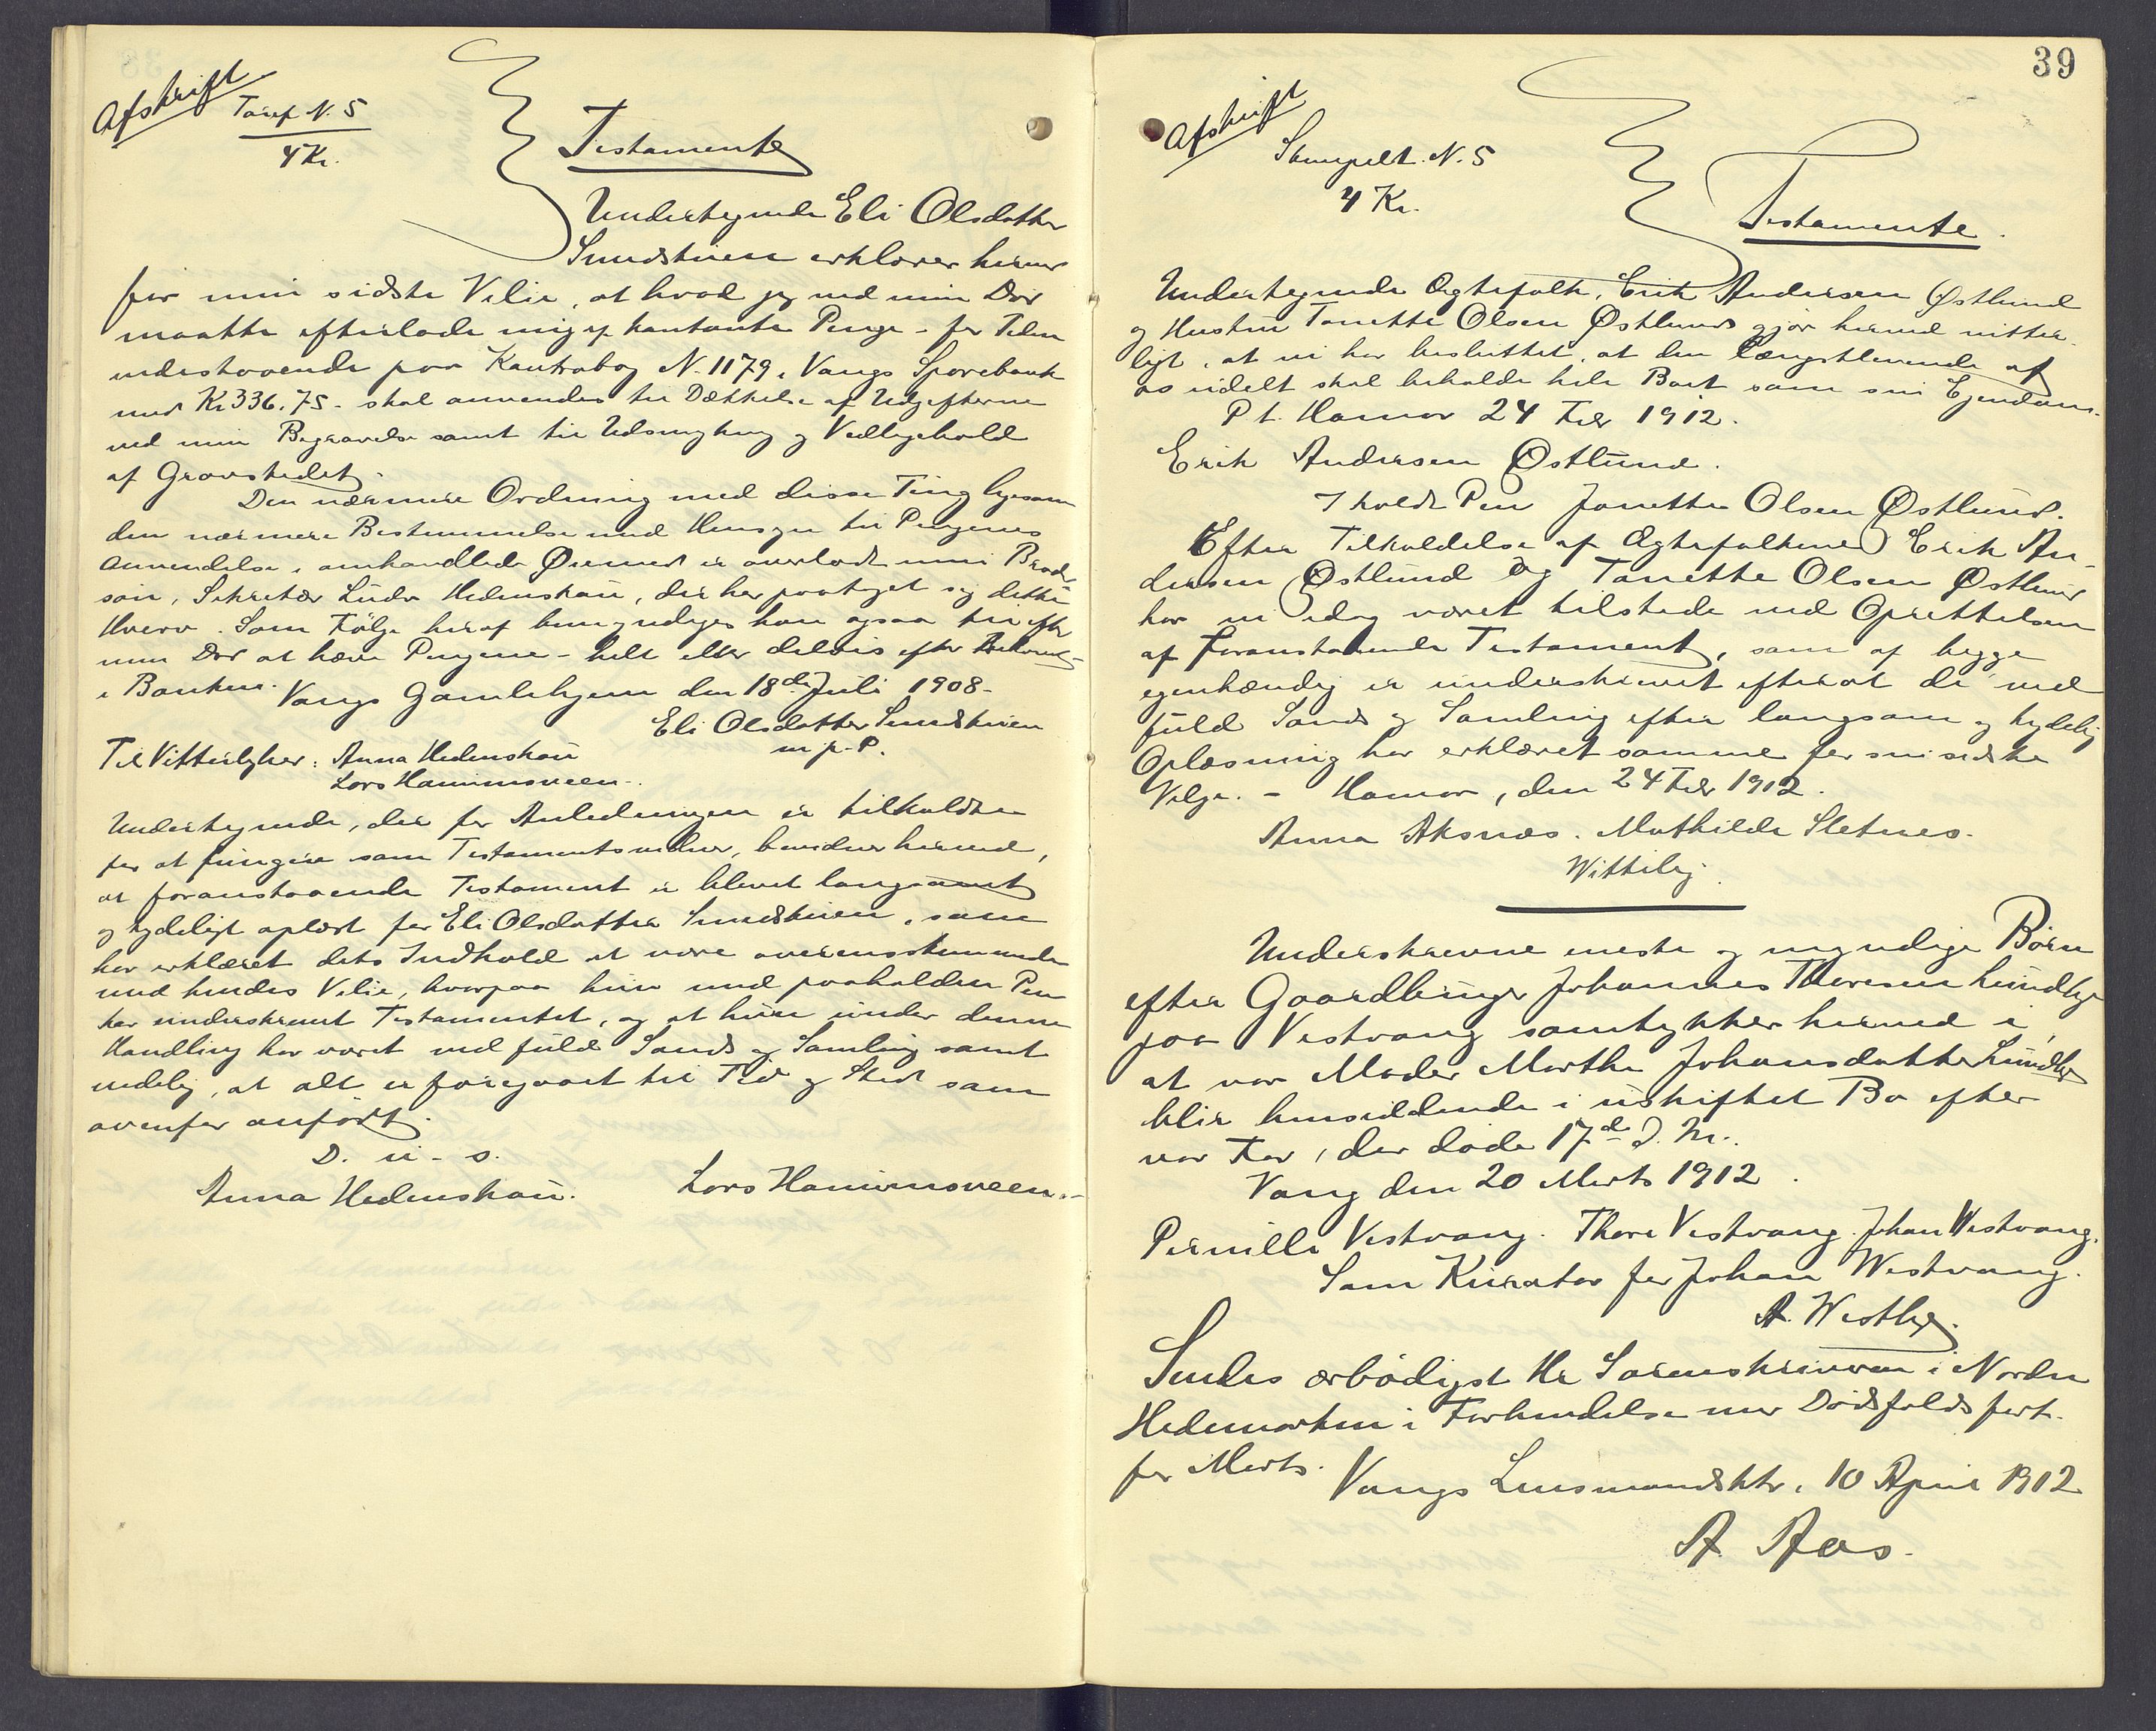 Afskrift
Taxef N. 5
4 Kr.
Testamente
Undertegnede Eli Olsdatter
Sundstuen erklærer herved
for min sidste Vilie, at hvad jeg ved min Død
maatte efterlade mig af kontante Penge - for Tiden
indestaaende paa Kontrabog N. 1179 i Vangs Sparebank
med Kr 336.75 - skal anvendes til Dækkelse af Udgifterne
ved min Begravelse samt til Udsmykning og Vedligehold
af Gravstedet.
Den nærmere Ordning med disse Ting ligesom
den nærmere Bestemmelse med Hensyn til Pengenes
Anvendelse i omhandlede Øiemed er overladt min Broder-
søn, Sekretær Ludv Hedenskou, der har paataget sig dette
Hverv. Som Følge heraf bemyndiges han ogsaa til efter
min Død at hæve Pengene - helt eller delvis efter
i Banken.
Vangs Gamlehjem den 18de Juli 1908.
Eli Olsdatter Sundstuen
m. p. P.
Til Vitterlighed: Anna Hedenskou
Lars Hommsveen.
Undertegnede, der for Anledningen er tilkaldte
for at fungere som Testamentsvidner, bevidner herved,
at foranstaaende Testament er blevet langsomt
og tydeligt oplæst for Eli Olsdatter Sundstuen, som
har erklæret dets Indhold at være overensstemmende
med hendes Vilie, hvorpaa hun med paaholden Pen
har underskrevet Testamentet, og at hun under denne
Handling har været ved fuld Sands og Samling samt
endelig, at alt er foregaaet til Tid og Sted som
ovenfor anført.
D. u. s.
Anna Hedenskou. Lars Hommsveen.
39
Afskrift
Stempelt. N. 5
4 Kr.
Testamente.
Undertegnede Ægtefolk, Erik Andersen Østlund
og Hustru Tonette Olsen Østlund gjør herved vitter-
ligt, at vi har besluttet, at den længstlevende af
os udelt skal beholde hele Boet som sin Ejendom.
P. t. Hamar 24 Febr 1912.
Erik Andersen Østlund.
I holdt Pen Jonette Olsen Østlund.
Efter Tilkaldelse af Ægtefolkene Erik An-
dersen Østlund og Tonette Olsen Østlund
har vi idag været tilstede ved Oprettelsen
af foranstaaende Testament, som af begge
egenhændig er underskrevet efterat de ved
fuld Sands og Samling efter langsom og tydelig
Oplæsning har erklæret samme for sin sidste
Vilje. - Hamar, den 24 Febr 1912.
Anna Aksnæs. Mathilde Sletnes.
Vitterlig
Underskrevne eneste og myndige Børn
efter Gaardbruger Johannes Thoresen Lundby
paa Vestvang samtykker herved i,
at vor Moder Marthe Johansdatter Lundby
blir hensiddende i uskiftet Bo efter
vor Far, der døde 17de d. M.
Vang den 20 Marts 1912.
Pernille Vestvang. Thore Vestvang. Johan Westvang.
Som Kurator for Johan Westvang.
A. Westby.
Sendes ærbødigst Hr Sorenskriveren i Nordre
Hedemarken i Forbindelse med Dødsfaldsfort.
for Marts.
Vangs Lensmandsktr. 10 April 1912
A Aas.